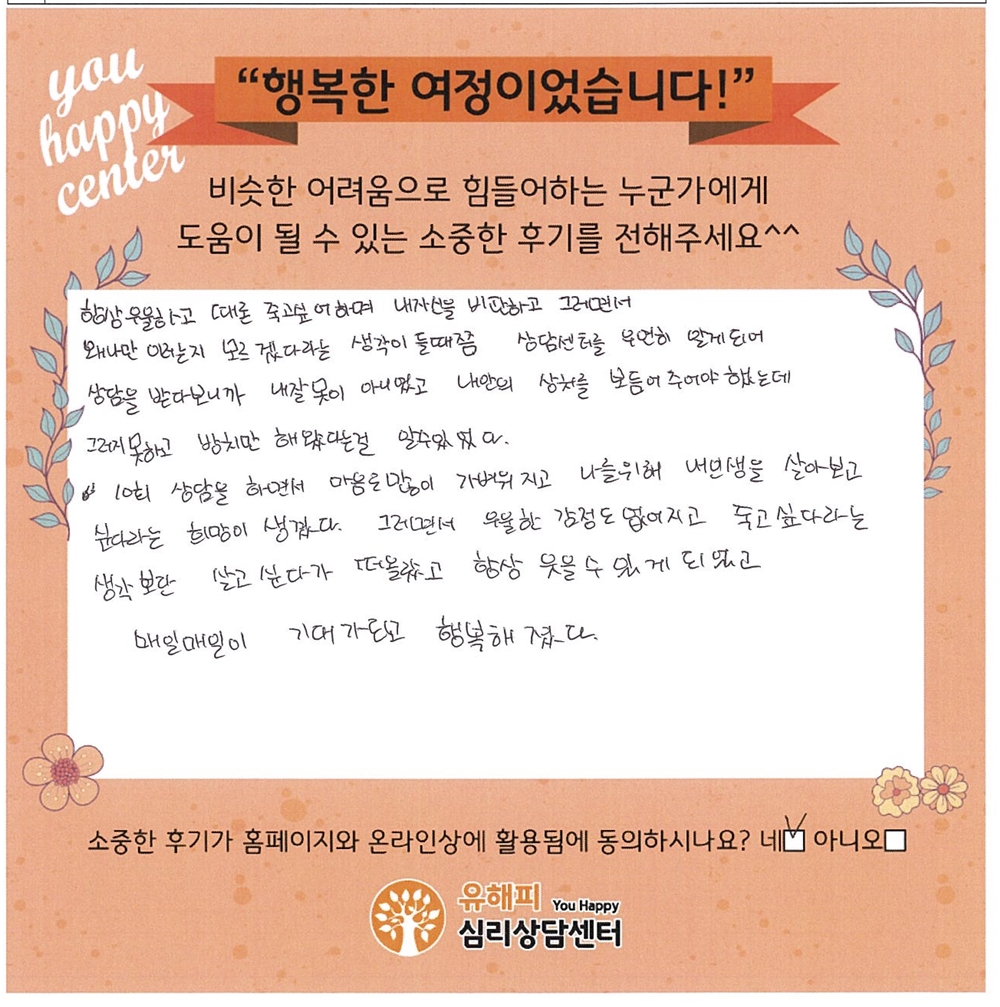 you
happy
center
“행복한 여정이었습니다!”
비슷한 어려움으로 힘들어하는 누군가에게
도움이 될 수 있는 소중한 후기를 전해주세요^^
항상 우울하고 때론 죽고싶어하며 내자신을 비판하고 그러면서
왜나만 이러는지 모르겠다라는 생각이 들때쯤 상담센터를 우연히 알게되어
상담을 받다보니까 내잘못이 아니였고 내안의 상처를 보듬어주어야 했는데
그러지못하고 방치만 해왔다는걸 알수있었다.
10회 상담을 하면서 마음도 몸이 가벼워지고 나를위해 내인생을 살아보고
싶다라는 희망이 생겼다. 그러면서 우울한 감정도 없어지고 죽고싶다라는
생각보단 살고싶다가 떠올랐고 항상 웃을수 있게 되었고
매일매일이 기대가되고 행복해졌다.
소중한 후기가 홈페이지와 온라인상에 활용됨에 동의하시나요? 네 아니오
유해피 You Happy
심리상담센터